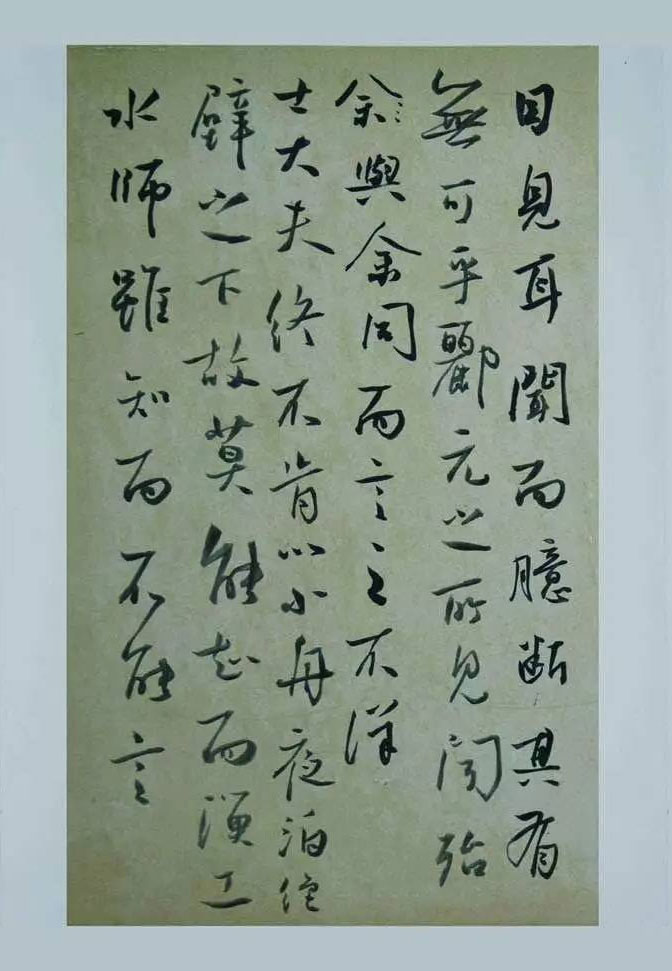 目見耳聞而臆斷其有
無可乎酈元之所見聞殆
余與余同而言之不詳
士大夫終不肯以小舟夜泊絕
壁之下故莫能知而漁工
水師雖知而不能言